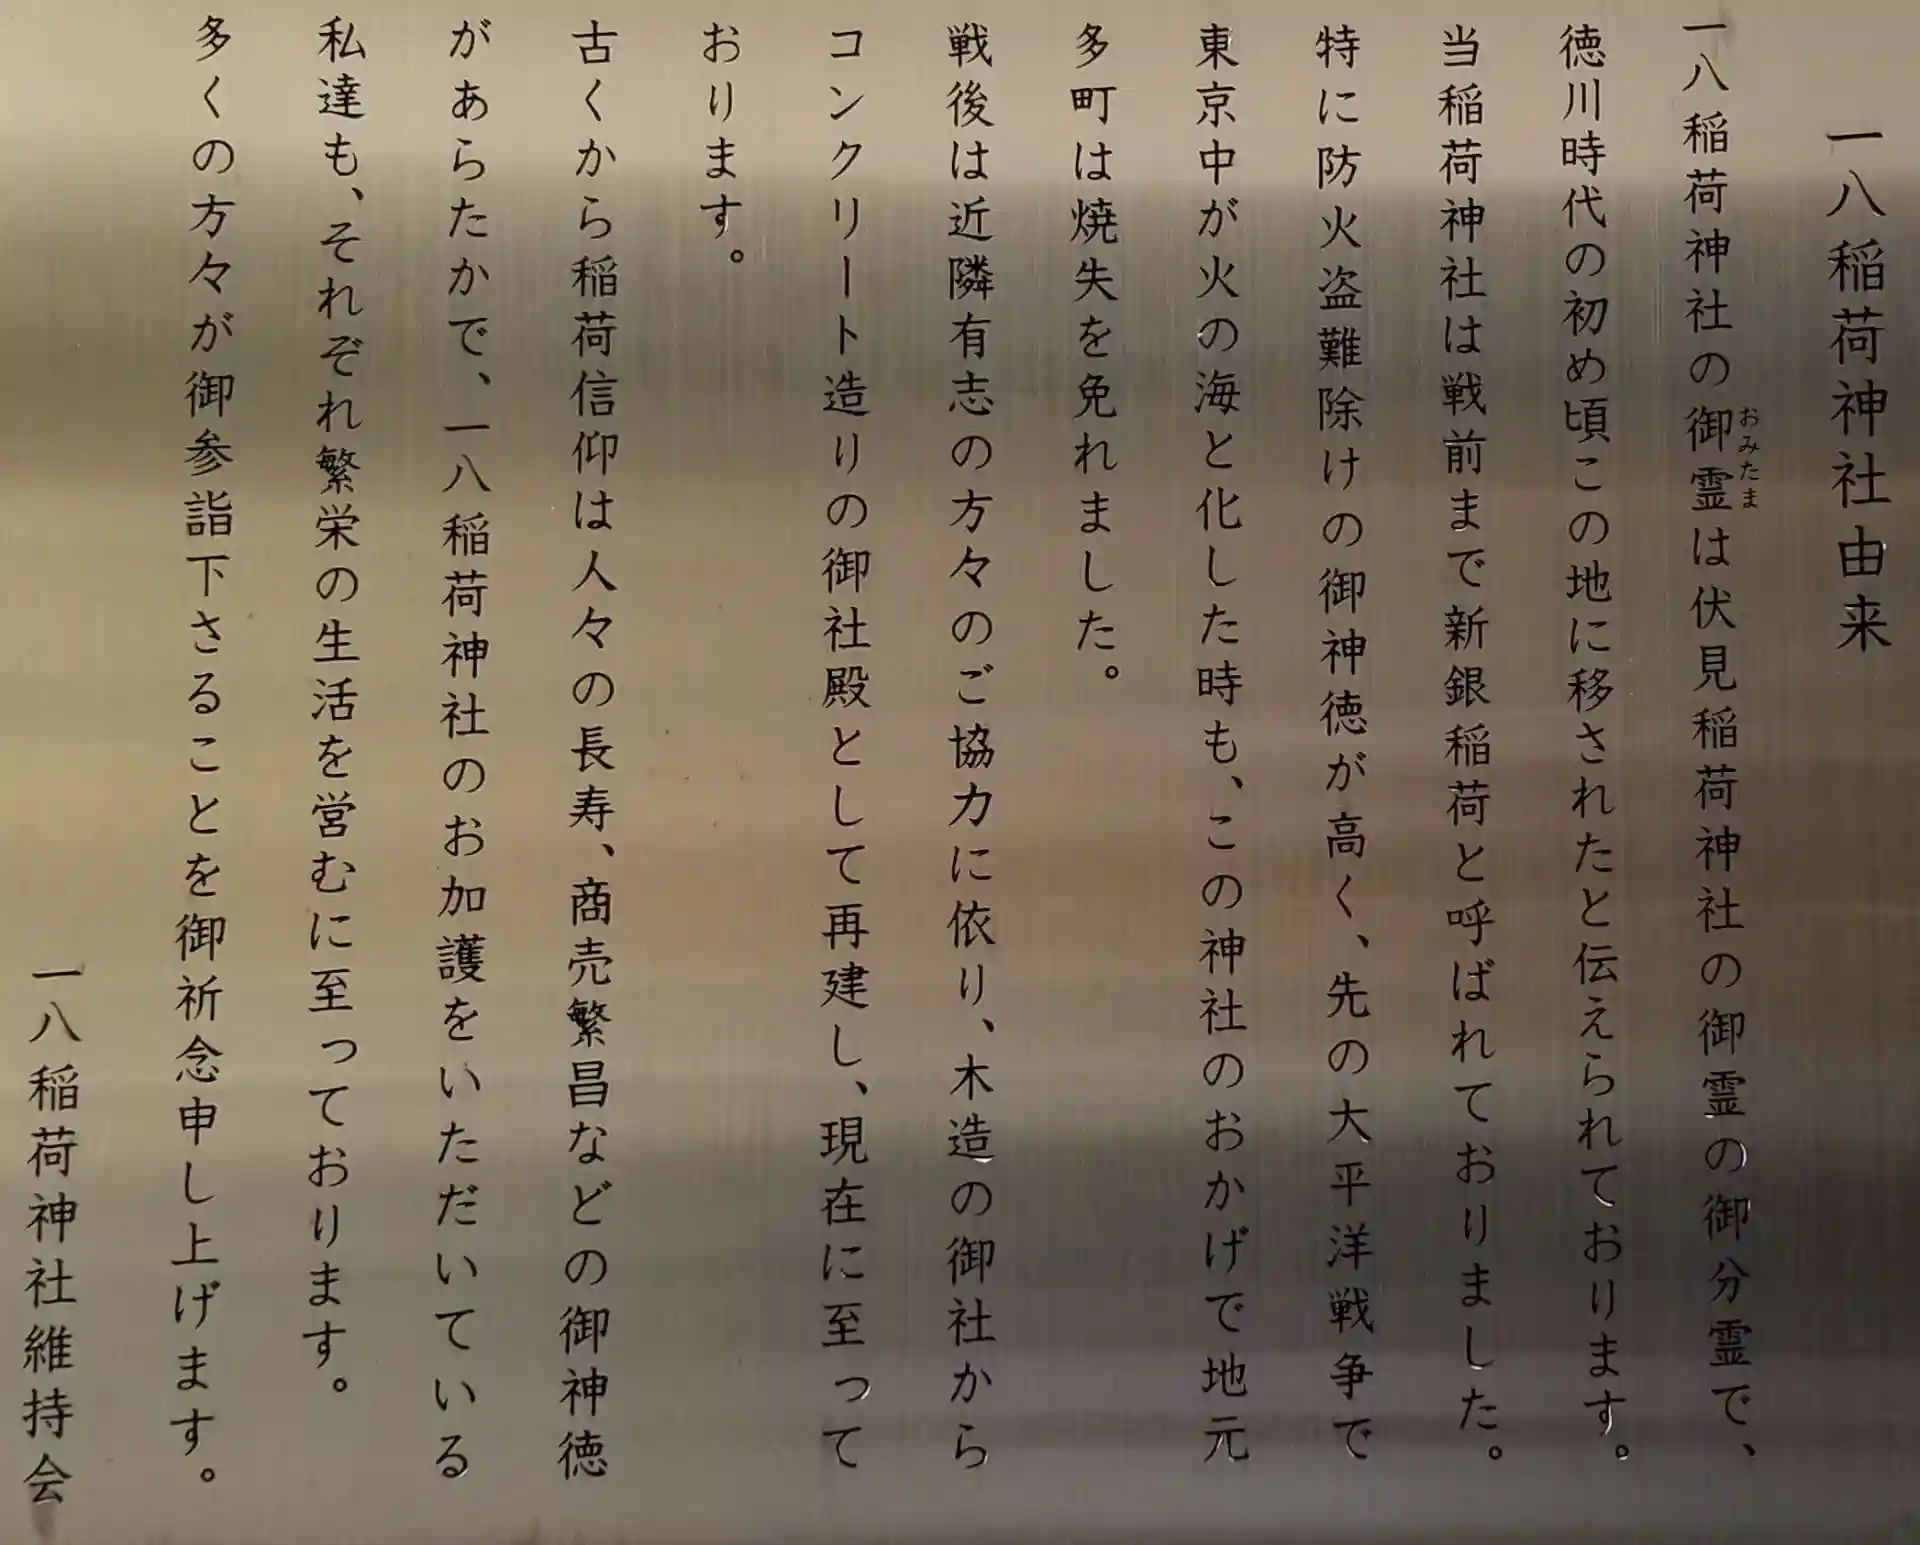 一八稲荷神社由来
一八稲荷神社の御霊は伏見稲荷神社の御霊の御分霊で、
おみたま
徳川時代の初め頃この地に移されたと伝えられております。
当稲荷神社は戦前まで新銀稲荷と呼ばれておりました。
特に防火盗難除けの御神徳が高く、先の大平洋戦争で
東京中が火の海と化した時も、この神社のおかげで地元
多町は焼失を免れました。
戦後は近隣有志の方々のご協力に依り、木造の御社から
コンクリート造りの御社殿として再建し、現在に至って
おります。
古くから稲荷信仰は人々の長寿、商売繁昌などの御神徳
があらたかで、一八稲荷神社のお加護をいただいている
私達も、それぞれ繁栄の生活を営むに至っております。
多くの方々が御参詣下さることを御祈念申し上げます。
一八稲荷神社維持会